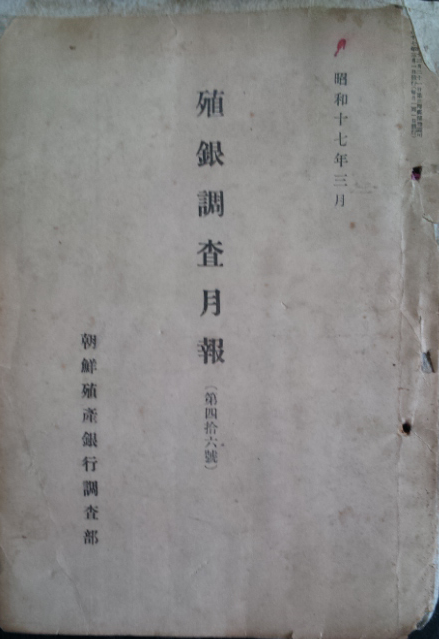 昭和十七年三月
殖銀調査月報
(第四拾六號)
朝鮮殖產銀行調査部